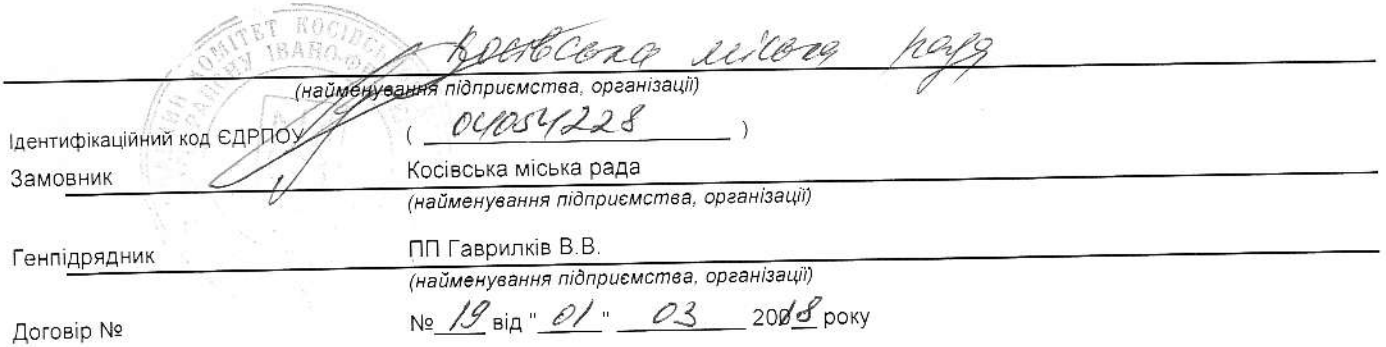 Косівська міська рада
(найменування підприємства, організації)
Ідентифікаційний код ЄДРПОУ ( 04054228 )
Замовник Косівська міська рада
(найменування підприємства, організації)
Генпідрядник ПП Гаврилків В.В.
(найменування підприємства, організації)
Договір № № 19 від " 01 " 03 2018 року